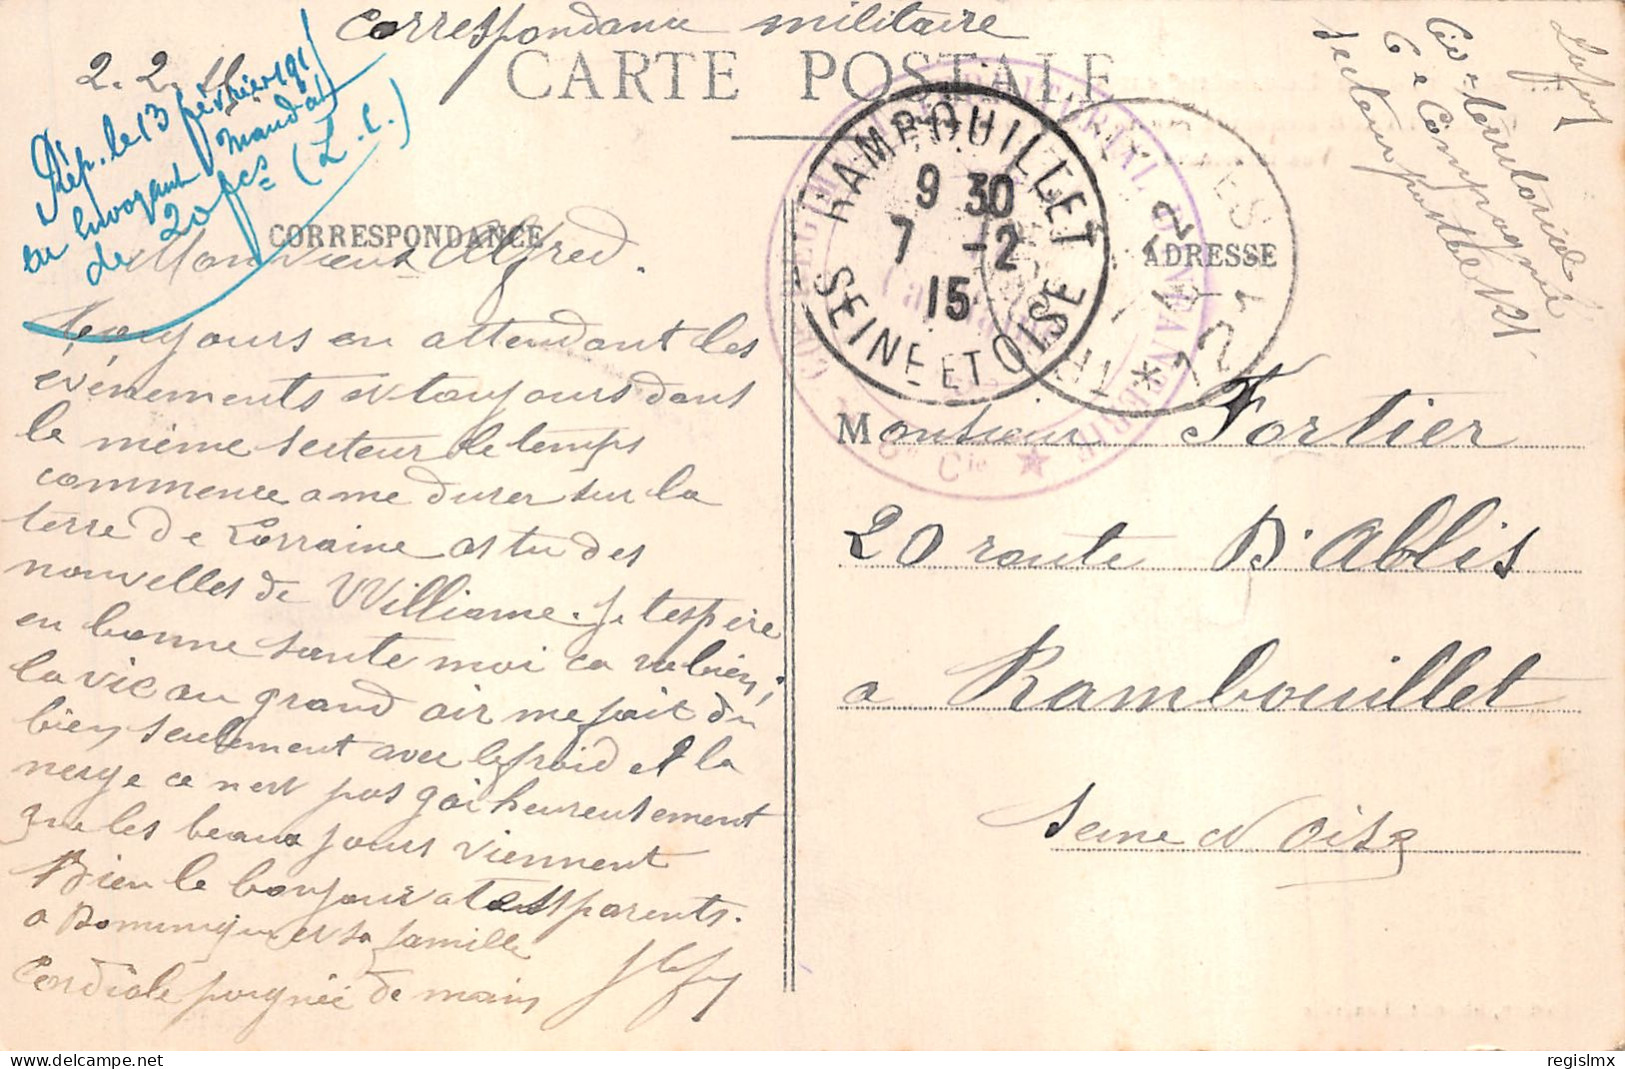 correspondance militaire
CARTE POSTALE
2. 2.
Rép. le 13 février 191
en envoyant mandat
de 20 fcs = (L. C.)
CORRESPONDANCE
Mon vieux Alfred.
Toujours en attendant les
évènements et toujours dans
le même secteur le temps
commence a me durer sur la
terre de Lorraine as tu des
nouvelles de Williame. Je t'espère
en bonne sante moi ca va bien,
la vie au grand air me fait du
bien seulement avec le froid et la
neige ce n'est pas gai heureusement
que les beaux jours viennent
Bien le bonjour a tes parents.
a Dominique et sa famille
Cordiale poignée de main
RAMBOUILLET
9 30
7 -2
15
SEINE ET OISE
6e Cie
ADRESSE
territorial
6e Compagnie
secteur postal 121
Monsieur Fortier
20 route D'Ablis
a Rambouillet
Seine et Oise
regislmx